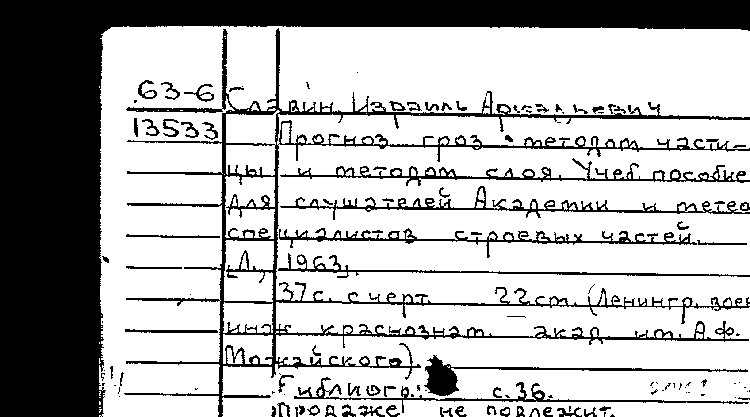 63-6 Славин, Израиль Аркадьевич
13533 Прогноз гроз методом части-
цы и методом слоя. Учеб пособие
для слушателей Академии и метео
специалистов строевых частей.
[Л., 1963].
37с. с черт. 22 cm. (Ленингр. воен
инж краснознам. акад им. А.Ф.
Можайского).
Библиогр.: с.36.
Продаже не подлежит.